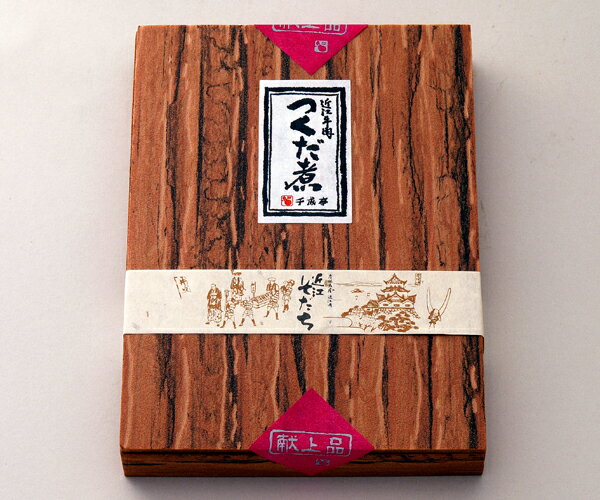 献上品
近江牛肉
つくだ煮
千成亭
近江
そだち
献上品